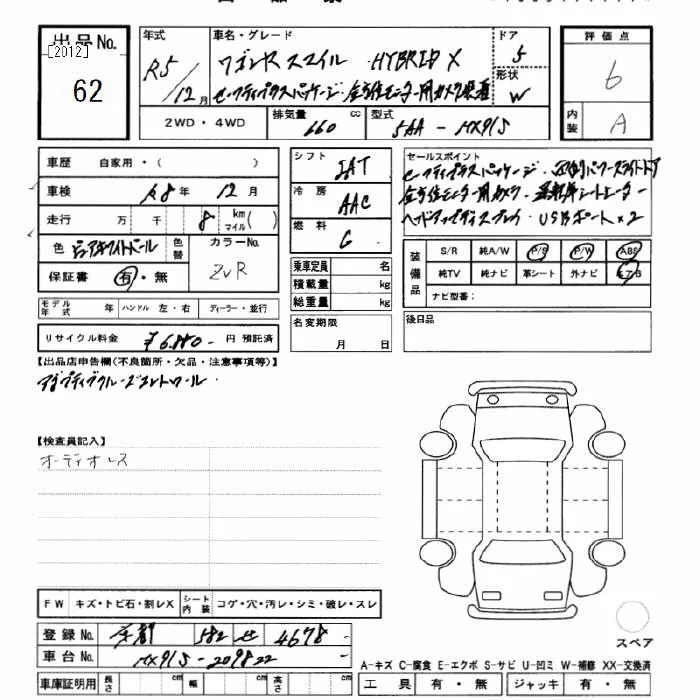 出品No.
[2012]
62
年式
R5/12月
車名・グレード
ワゴンRスマイル HYBRID X
セーフティプラスパッケージ・全方位モニター用カメラ装着
ドア
5
形状
W
評価点
6
内装
A
2WD・4WD
排気量 660 cc
型式 5AA - MX91S
車歴 自家用・( )
車検 R8年 12月
走行 万 千 8 km マイル( )
色 ピュアホワイトパール 色替
カラーNo. ZVR
保証書 有・無
モデル年式 年 ハンドル 左・右 ディーラー・並行
リサイクル料金 ¥6,880- 円 預託済
シフト IAT
冷房 AAC
燃料 G
乗車定員 名
積載量 kg
総重量 kg
名変期限
月 日
セールスポイント
セーフティプラスパッケージ・両側パワースライドドア
全方位モニター用カメラ・運転席シートヒーター
ヘッドアップディスプレイ・USBポート×2
装備品
S/R 純A/W P/S P/W ABS
純TV 純ナビ 革シート 外ナビ エアB
ナビ型番:
後日品
【出品店申告欄(不良箇所・欠品・注意事項等)】
アダプティブクルーズコントロール・
【検査員記入】
オーディオレス
FW キズ・トビ石・割レX シート内装 コゲ・穴・汚レ・シミ・破レ・スレ
登録No. 京都 582 せ 4678
車台No. MX91S-209822
車庫証明用 長さ cm 幅 cm 高さ cm
スペア
A-キズ C-腐食 E-エクボ S-サビ U-凹ミ W-補修 XX-交換済
工具 有・無 ジャッキ 有・無